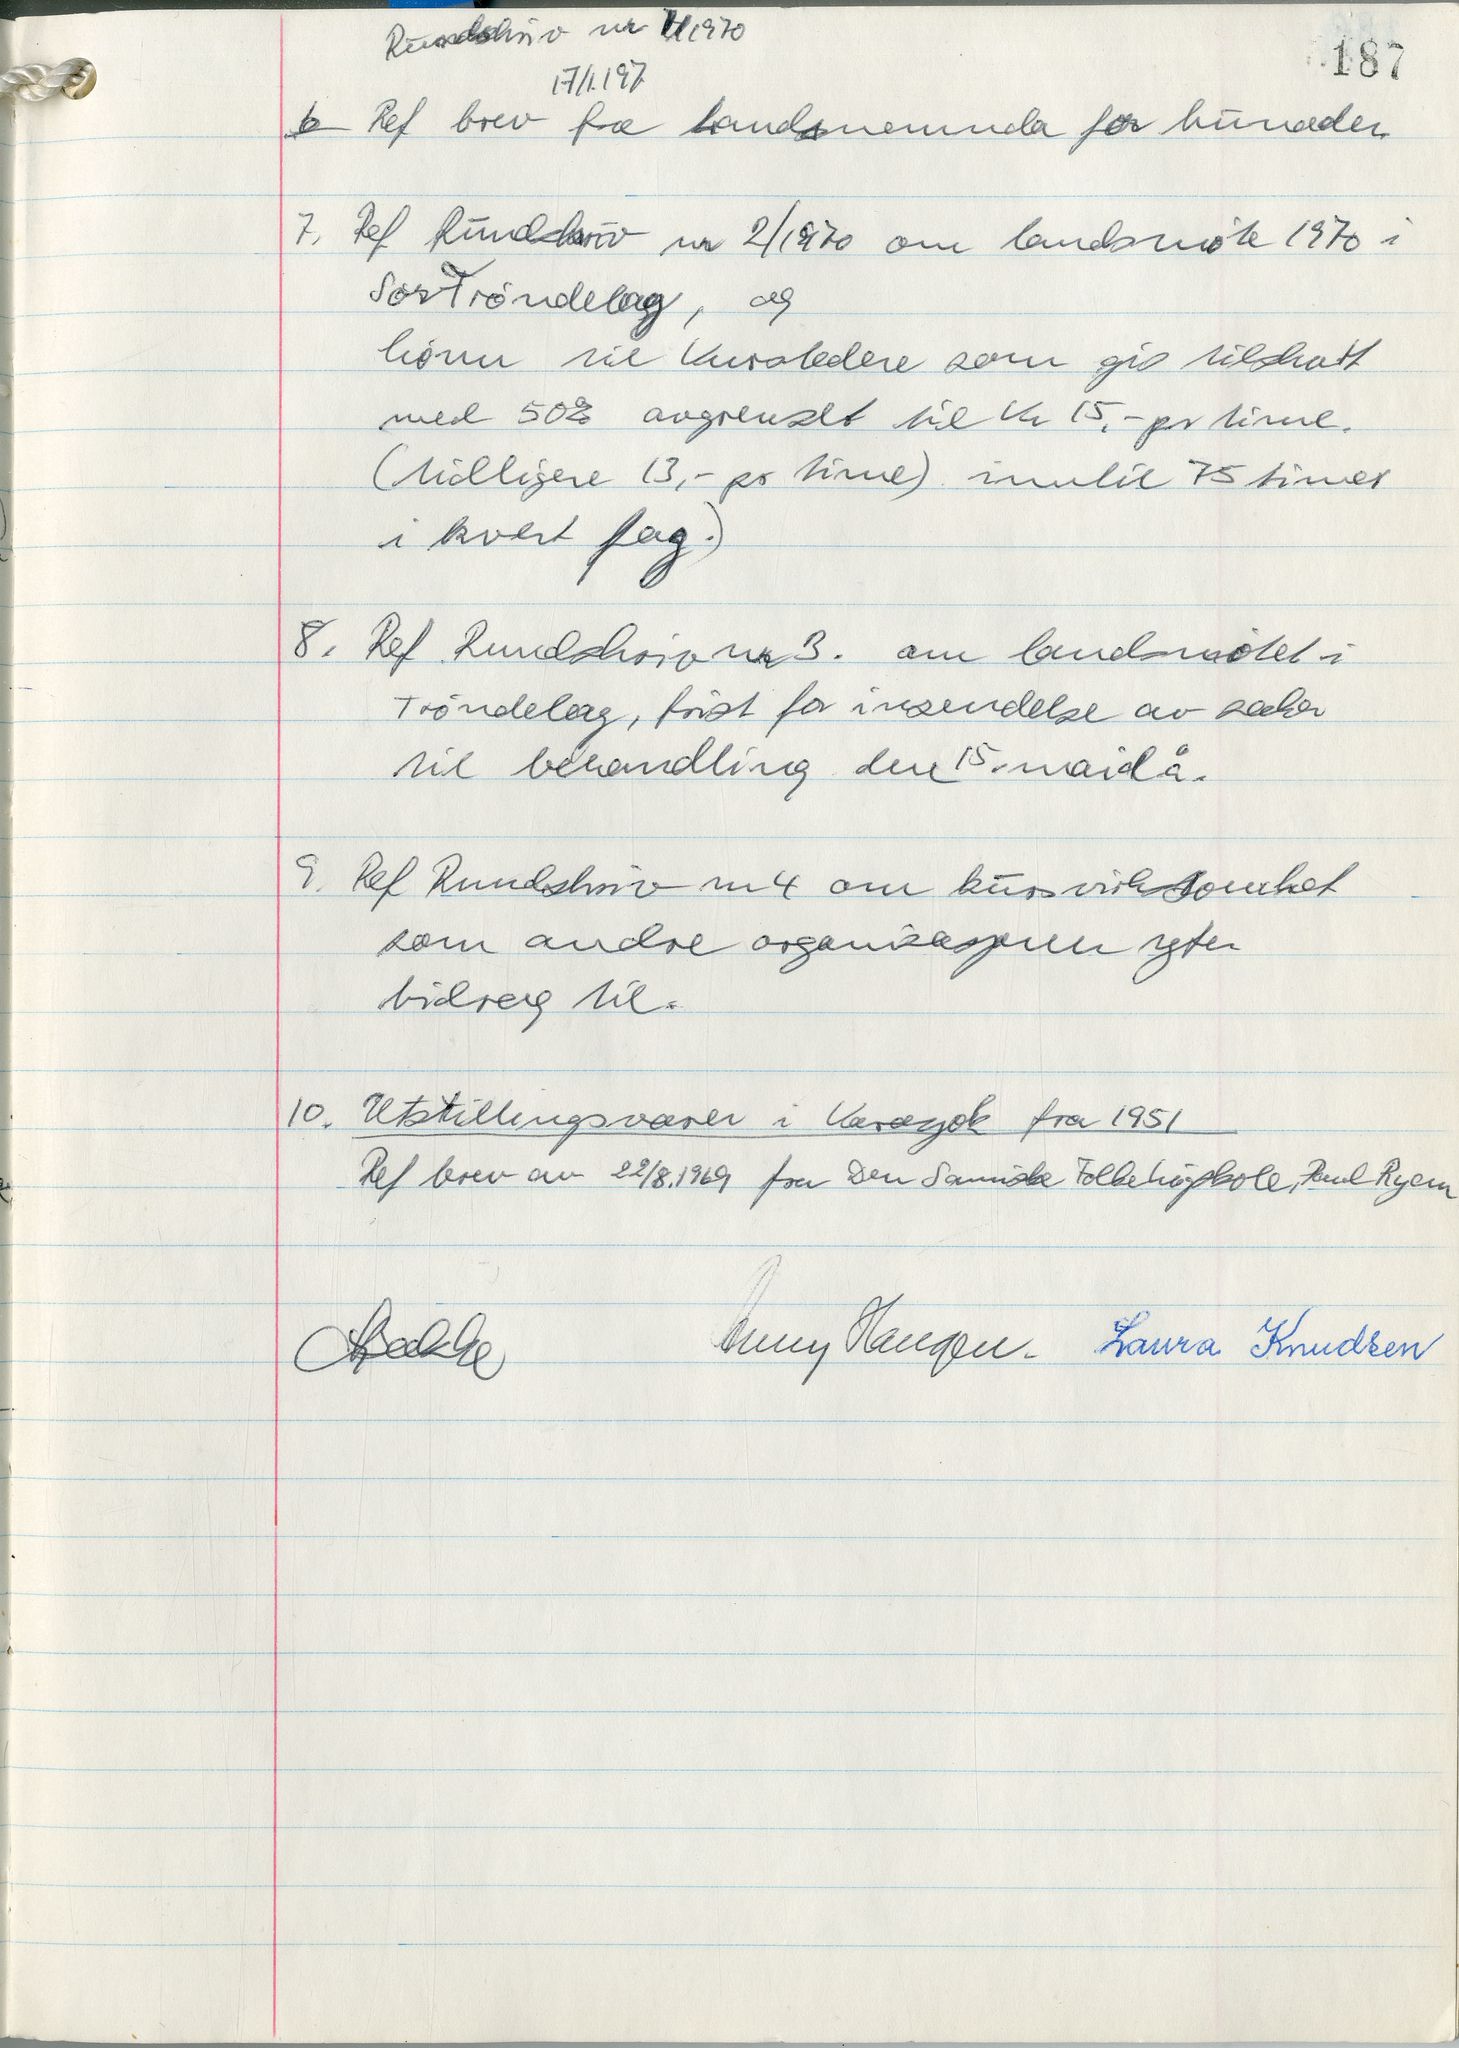 187
Rundskriv nr 1/1970
17/1.197
6 Ref brev fra Landsnemnda for bunader.
7. Ref Rundskriv nr 2/1970 om landsmöte 1970 i
SörTröndelag, og
lönn til Kursledere som gis tilskott
med 50% avgrenset til Kr 15,- pr time.
(tidligere 13,- pr time) inntil 75 timer
i kvert fag.)
8. Ref Rundskriv nr 3. om landsmötet i
Tröndelag, frist for insendelse av saker
til behandling den 15. mai d å.
9. Ref Rundskriv nr 4 om kursvirksomhet
som andre organisasjoner yter
bidrag til.
10. Utstillingsvarer i Karasjok fra 1951
Ref brev av 22/8.1969 fra Den Samiske Folkehögskole, Poul Ryem
Bakke Haugen. Laura Knudsen